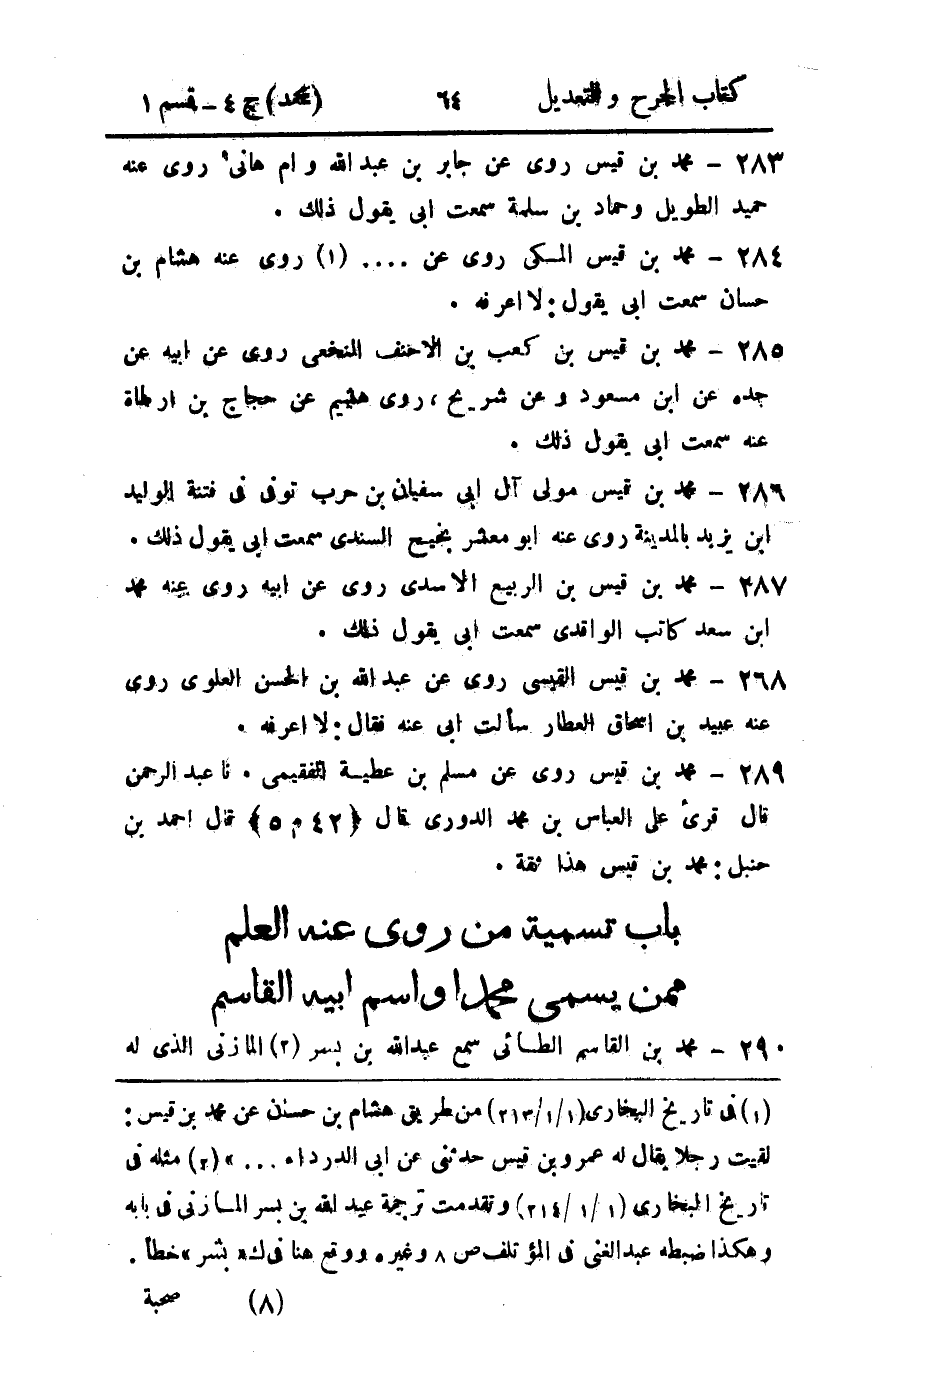 كتاب الجرح والتعديل ٦٤ (محمد) ج ٤ - قسم ١
٢٨٣ - محمد بن قيس روى عن جابر بن عبد الله وام هانىء روى عنه
حميد الطويل وحماد بن سلمة سمعت ابى يقول ذلك .
٢٨٤ - محمد بن قيس المكى روى عن .... (١) روى عنه هشام بن
حسان سمعت ابى يقول: لا اعرفه .
٢٨٥ - محمد بن قيس بن كعب بن الاحنف النخعى روى عن ابيه عن
جده عن ابن مسعود وعن شريح ، روى هشيم عن حجاج بن ارطاة
عنه سمعت ابى يقول ذلك .
٢٨٦ - محمد بن قيس مولى آل ابى سفيان بن حرب توفى فى فتنة الوليد
ابن يزيد بالمدينة روى عنه ابو معشر نجيح السندى سمعت ابى يقول ذلك .
٢٨٧ - محمد بن قيس بن الربيع الاسدى روى عن ابيه روى عنه محمد
ابن سعد كاتب الواقدى سمعت ابى يقول ذلك .
٢٦٨ - محمد بن قيس القيسى روى عن عبد الله بن الحسن العلوى روى
عنه عبيد بن اسحاق العطار سألت ابى عنه فقال: لا اعرفه .
٢٨٩ - محمد بن قيس روى عن مسلم بن عطية الفقيمى . نا عبد الرحمن
قال قرئ على العباس بن محمد الدورى قال ﴿٤٢ م ٥﴾ قال احمد بن
حنبل: محمد بن قيس هذا ثقة .
باب تسمية من روى عنه العلم
ممن يسمى محمدا واسم ابيه القاسم
٢٩٠ - محمد بن القاسم الطائى سمع عبد الله بن بسر (٢) المازنى الذى له
(١) فى تاريخ البخارى (٢١٣/١/١) من طريق هشام بن حسان عن محمد بن قيس :
لقيت رجلا يقال له عمرو بن قيس حدثنى عن ابى الدرداء ... » (٢) مثله فى
تاريخ البخارى (٢١٤/١/١) وتقدمت ترجمة عبد الله بن بسر المازنى فى بابه
وهكذا ضبطه عبد الغنى فى المؤتلف ص ٨ وغيره ووقع هنا فى ك « بشر » خطأ .
(٨) صحبة